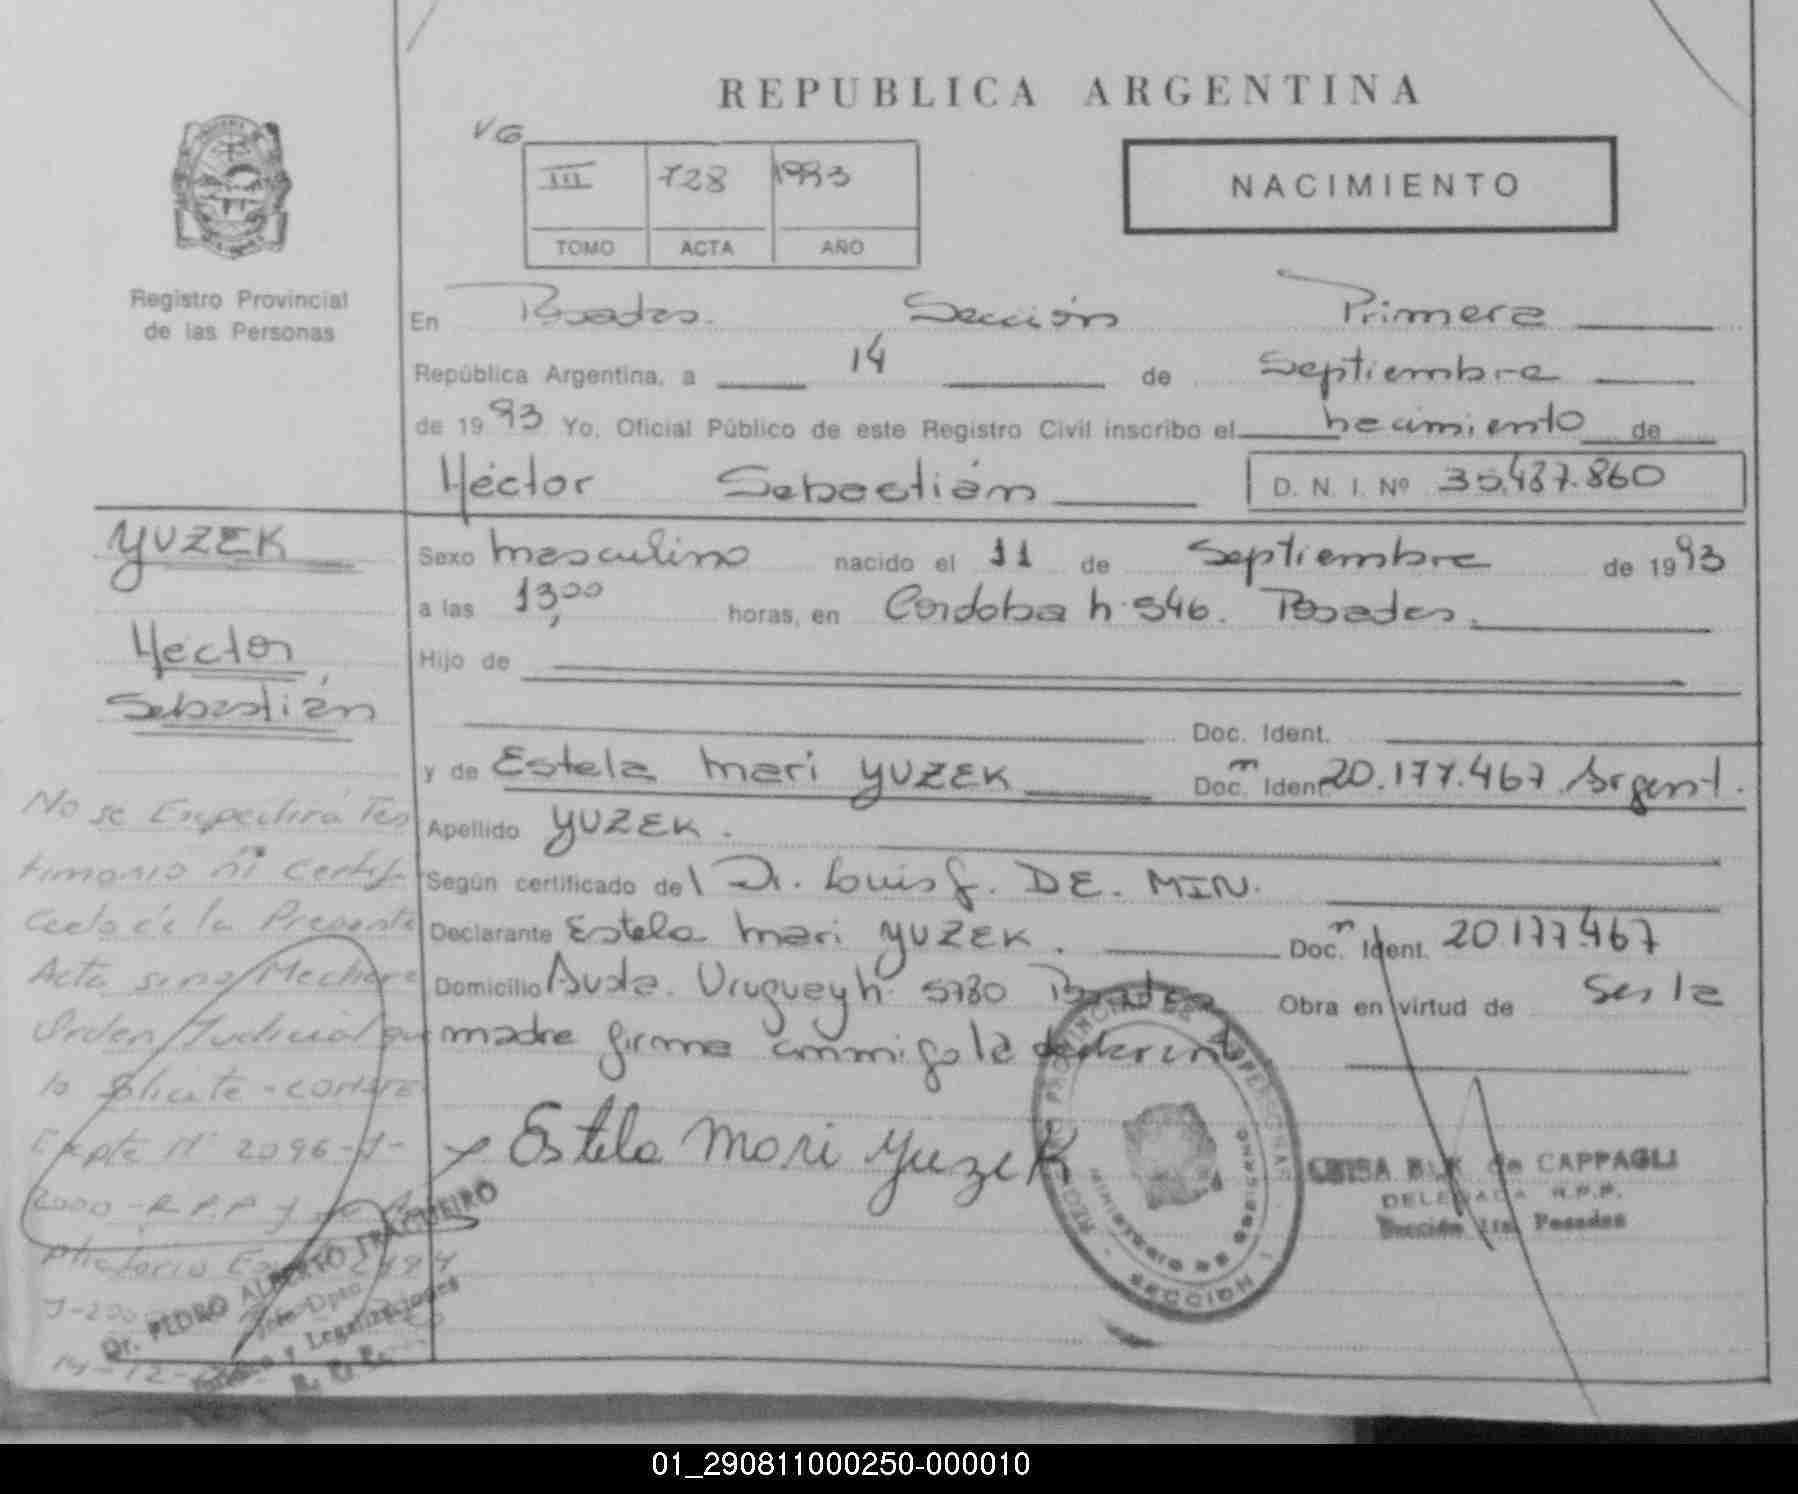 REPUBLICA ARGENTINA
VG
III 728 1993
TOMO ACTA AÑO
NACIMIENTO
Registro Provincial
de las Personas
En Posadas. Sección Primera
República Argentina, a 14 de Septiembre
de 1993 Yo, Oficial Público de este Registro Civil inscribo el nacimiento de
Héctor Sebastián D. N. I. Nº 35.487.860
YUZEK
Héctor
Sebastián
Sexo masculino nacido el 11 de Septiembre de 1993
a las 13,00 horas, en Cordoba n. 546. Posadas.
Hijo de
Doc. Ident.
y de Estela Mari YUZEK Doc. Ident. 20.177.467 Argent.
Apellido YUZEK.
Según certificado del Dr. Luis J. DE. MIN.
Declarante Estela Mari YUZEK. Doc. Ident. 20.177.467
Domicilio Avda. Uruguay n. 5780 Posadas Obra en virtud de Ser la
madre firma conmigo la declarante
No se Expedirá Tes
timonio ni Certifi
cado de la Presente
Acta sino Mediare
Orden Judicial que
lo solicite - CONSTE
Expte Nº 2096-J-
2000 - R.P.P y
Estela Mari Yuzek
REGISTRO PROVINCIAL DE LAS PERSONAS
MINISTERIO DE GOBIERNO
SECCION 1
LUISA B. K. de CAPPAGLI
DELEGADA R.P.P.
Sección 1ra. Posadas
Dr. PEDRO ALBERTO
Jefe Dpto.
y Legalizaciones
R. P. P.
01_290811000250-000010